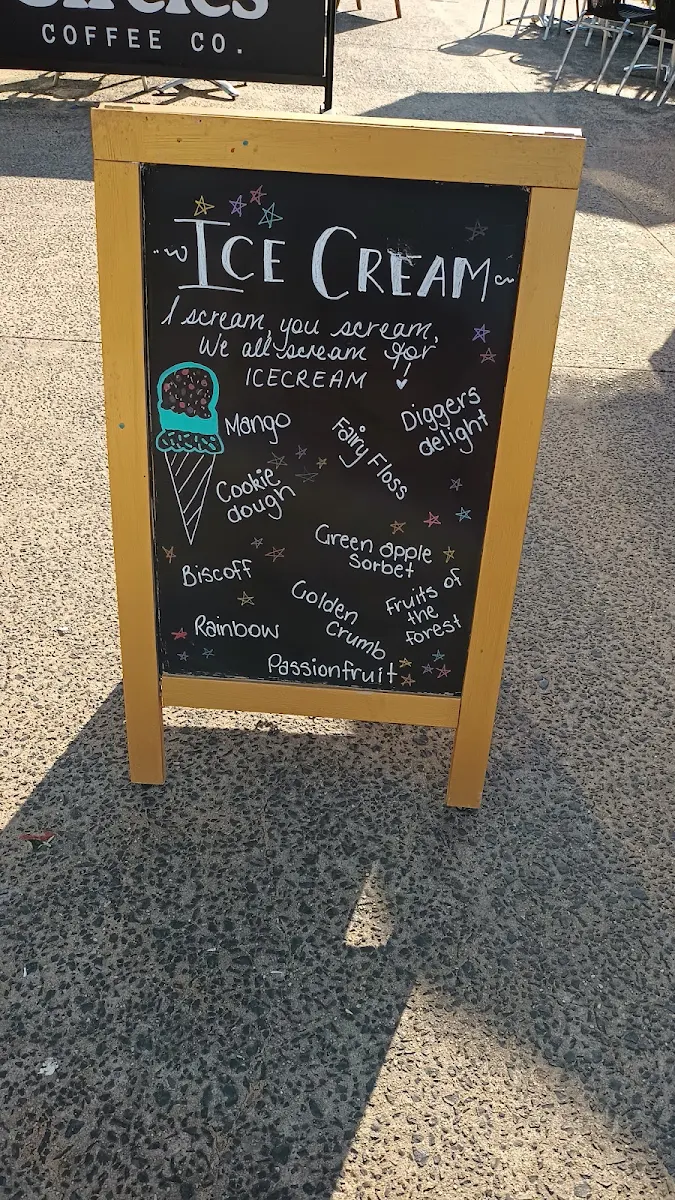 COFFEE CO.
ICE CREAM
I scream, you scream,
We all scream for
ICECREAM !
Mango
Fairy Floss
Diggers
delight
Cookie
dough
Green apple
Sorbet
Biscoff
Golden
Crumb
Fruits of
the
forest
Rainbow
Passionfruit